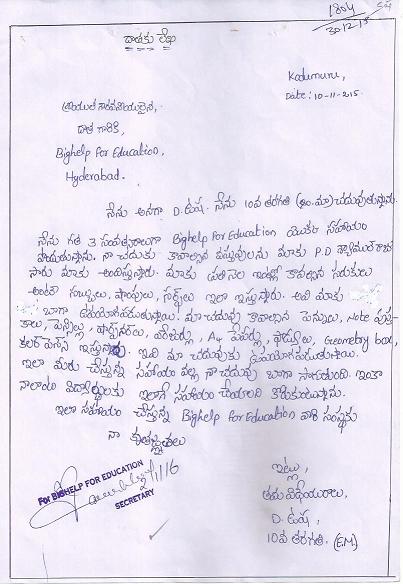 1804
30-12-15
దాతకు లేఖ
Kodumuru,
Date: 10-11-215.
శ్రీయుత గౌరవనీయులైన,
దాత గారికి,
Bighelp for Education,
Hyderabad.
నేను అనగా D. ఉష. నేను 10వ తరగతి (ఇం.మా) చదువుతున్నాను.
నేను గత 3 సంవత్సరాలుగా Bighelp For Education యొక్క సహాయం
పొందుతున్నాను. నా చదువుకు కావాల్సిన వస్తువులను మాకు P.D
సారు మాకు అందిస్తున్నారు. మాకు ప్రతినెల ఇంట్లో కావల్సిన సరుకులు
అంటే సబ్బులు, షాంపులు, సర్ఫ్‌లు ఇలా ఇస్తున్నారు. అవి మాకు
బాగా ఉపయోగపడుతున్నాయి. మా చదువుకు కావాల్సిన పెన్నులు, Note పుస్త-
కాలు, పెన్సిల్లు, షార్ప్‌నర్‌లు, A4 పేపర్లు, Geometry box,
కలర్ పెన్సిల్స్ ఇస్తున్నారు. ఇవి మా చదువుకు ఉపయోగపడుతున్నాయి.
ఇలా మీరు చేస్తున్న సహాయం వల్ల నా చదువు బాగా సాగుతుంది. ఇంకా
నాలాంటి విద్యార్థులకు ఇలాగే సహాయం చేయాలని కోరుకుంటున్నాను.
ఇలా సహాయం చేస్తున్న Bighelp for Education వారి సంస్థకు
నా కృతజ్ఞతలు
For BIGHELP FOR EDUCATION
SECRETARY
ఇట్లు,
తమ విధేయురాలు,
D. ఉష,
10వ తరగతి. (E.M)